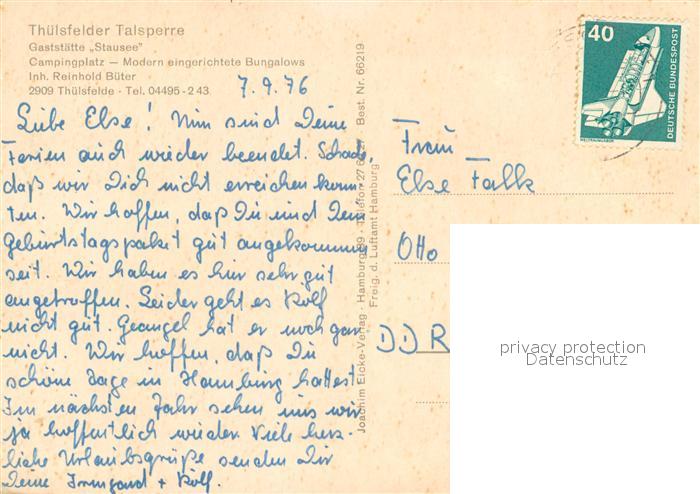 Thülsfelder Talsperre
Gaststätte „Stausee"
Campingplatz — Modern eingerichtete Bungalows
Inh. Reinhold Büter
2909 Thülsfelde · Tel. 04495-2 43
7.9.76
Liebe Else! Nun sind Deine
Ferien auch wieder beendet. Schade,
daß wir Dich nicht erreichen konn-
ten. Wir hoffen, daß Du und Dein
Geburtstagspaket gut angekommen
seit. Wir haben es hier sehr gut
angetroffen. Leider geht es Rolf
nicht gut. Geangel hat er noch gar
nicht. Wir hoffen, daß Du
schöne Tage in Hamburg hattest
Im nächsten Jahr sehen uns wir
ja hoffentlich wieder Viele herz-
liche Urlaubsgrüße senden Dir
Deine Irmgard + Rolf.
Joachim Eicke-Verlag · Hamburg · Telefon 27 · Best. Nr. 66219
Freig. d. Luftamt Hamburg
40
DEUTSCHE BUNDESPOST
WELTRAUMLABOR
Frau
Else Falk
Otto
DDR
privacy protection
Datenschutz